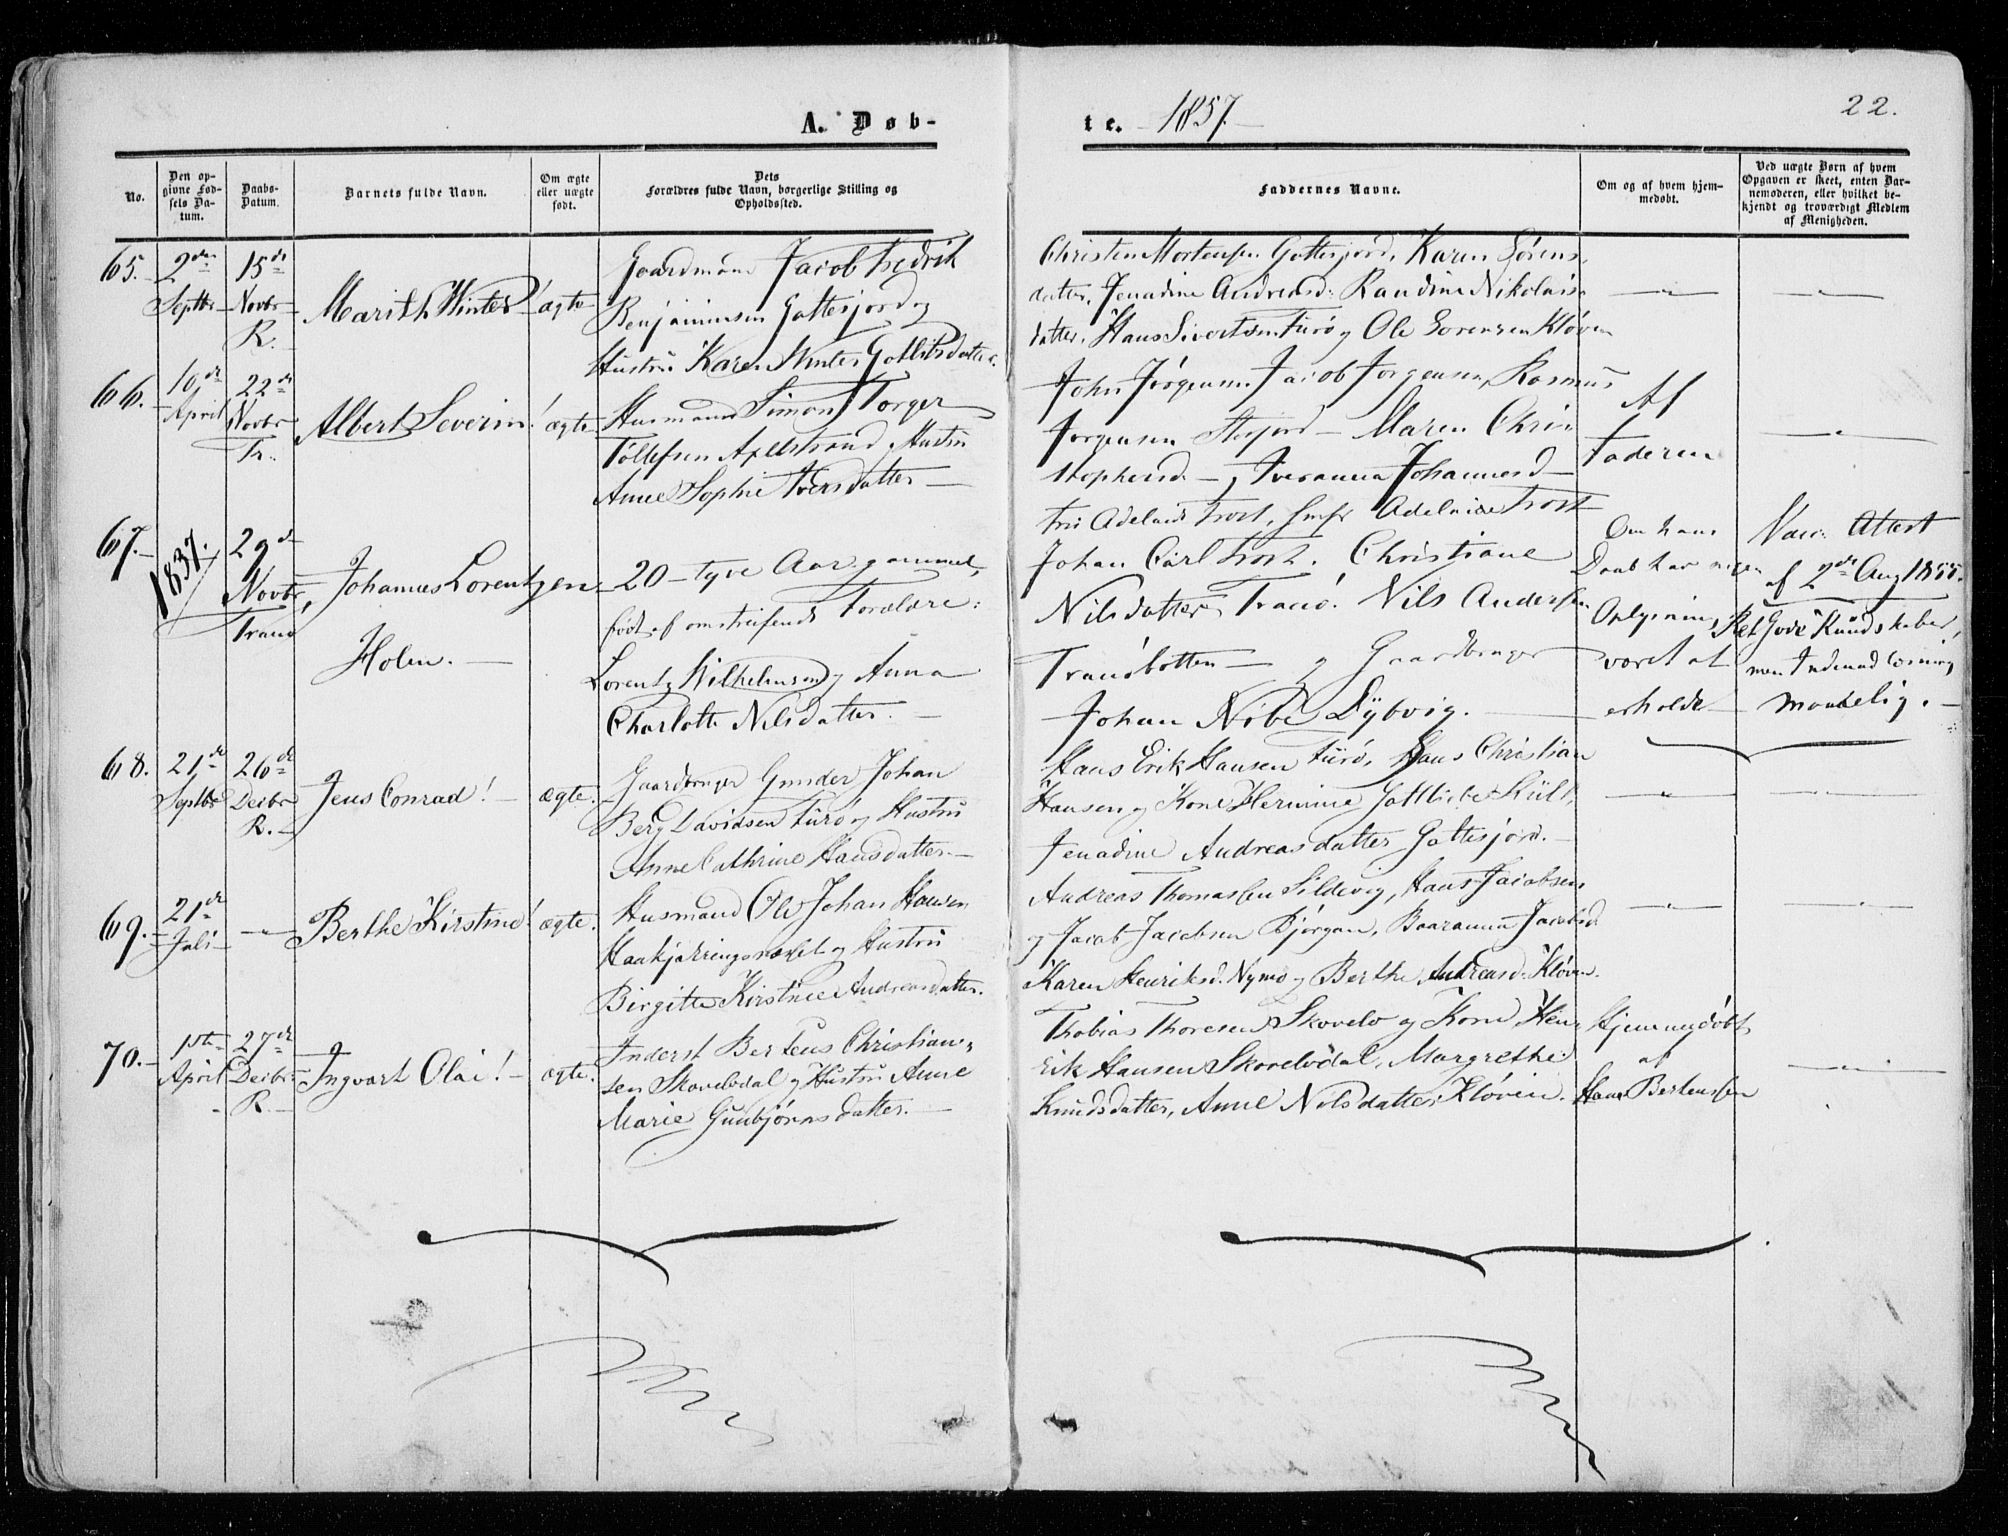 A. Døb-
te. 1857.
22.
No.
Den op-
givne Fød-
sels Da-
tum.
Daabs-
Datum.
Barnets fulde Navn.
Om ægte
eller uægte
født.
Dets
Forældres fulde Navn, borgerlige Stilling og
Opholdssted.
Faddernes Navne.
Om og af hvem hjem-
medøbt.
Ved uægte Børn af hvem
Opgaven er skeet, enten Bar-
nemoderen, eller hvilket be-
kjendt og troværdigt Medlem
af Menigheden.
65.
2den
Septbr
15de
Novbr
R.
Marith Winter!
ægte
Gaardmand Jacob Fredrik
Benjaminsen Gottesjord og
Hustru Karen Winter Gotlibsdatter.
Christen Mortensen Gottesjord, Karen Sørens-
datter, Jenadine Andreasd: Randine Nikolais-
datter, Hans Sivertsen Furø og Ole Sørensen Kløven
66.
10de
April
22de
Novbr
Tr.
Albert Severin!
ægte
Husmand Simon Torger
Tollefsen Apelstrand, Hustru
Anne Sophie Iversdatter
John Jørgensen, Jacob Jørgensen, Rasmus
Jørgensen Storjord - Maren Chri-
stophersd -, Iveranna Johannesd -
Af
Faderen
67.
1837.
29de
Novbr,
Tranø
Johannes Lorentzen
Holm.
20 - tyve Aar gammel,
født af omstreifende Forældre:
Lorentz Wilhelmsen og Anna
Charlotte Nilsdatter.
Fru Adelaide Trost, Jmfr Adelaide Trost
Johan Carl Trost. Christiane
Nilsdatter Tranø. Nils Andersen
Tranøbotten - og Gaardbruger
Johan Nibe Dybvig.
Om hans
Daab har ingen
Oplysning
været at
erholde
Vacc. Attest
af 2de Aug 1855.
Ret Gode Kundskaber,
men Indenadlæsning
maadelig.
68.
21de
Septbr
26de
Decbr
R.
Jens Conrad!
ægte.
Gaardbruger Gunder Johan
Berg Davidsen Furø og Hustru
Anne Cathrine Hansdatter.
Hans Erik Hansen Furø, Hans Christian
Hansen og Kone Hermine Gottliebe Kült,
Jenadine Andreasdatter Gottesjord.
69.
21de
Juli
Berthe Kirstine!
ægte.
Husmand Ole Johan Hansen
Haakjærringsnæset og Hustru
Birgitte Kirstine Andreasdatter.
Andreas Thomassen Sildevig, Hans Jacobsen
og Jacob Jacobsen Bjørgan, Baaranna Jacobsd
Karen Henriksd. Nymo og Berthe Andreasd: Kløven.
70.
1ste
April
27de
Decbr
R.
Ingvart Olai!
ægte.
Inderst Berteus Christian-
sen Skovelvdal og Hustru Anne
Marie Gunbjørnsdatter.
Thobias Thoresen Skovelv og Kone, Hen-
rik Hansen Skovelvdal, Margrethe
Knudsdatter, Anne Nilsdatter Kløven.
Hjemmedøbt
af
Hans Bertensen